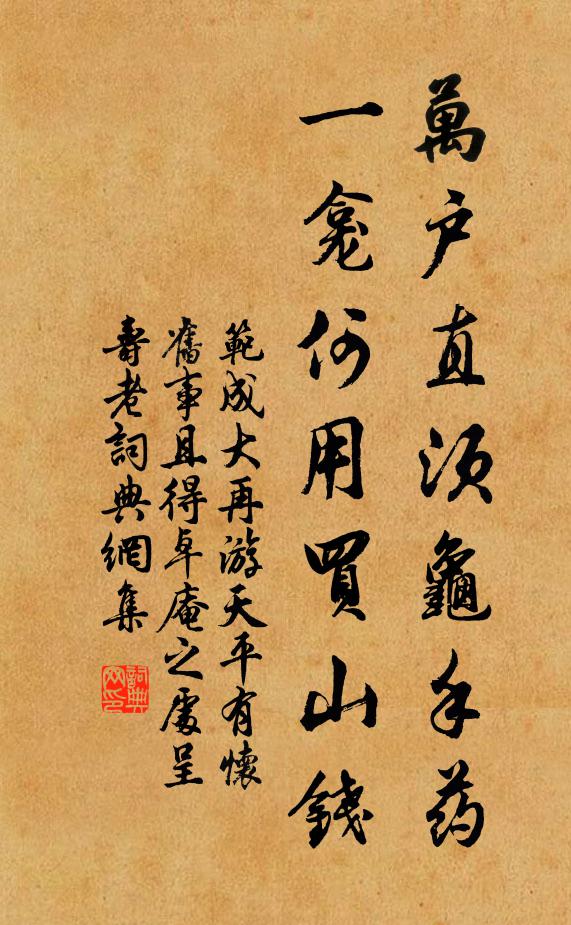 萬户直須龜手药
一龕何用買山錢
範成大再游天平有懷
舊事且得卓庵之處呈
壽老詞典網集
詞典网印